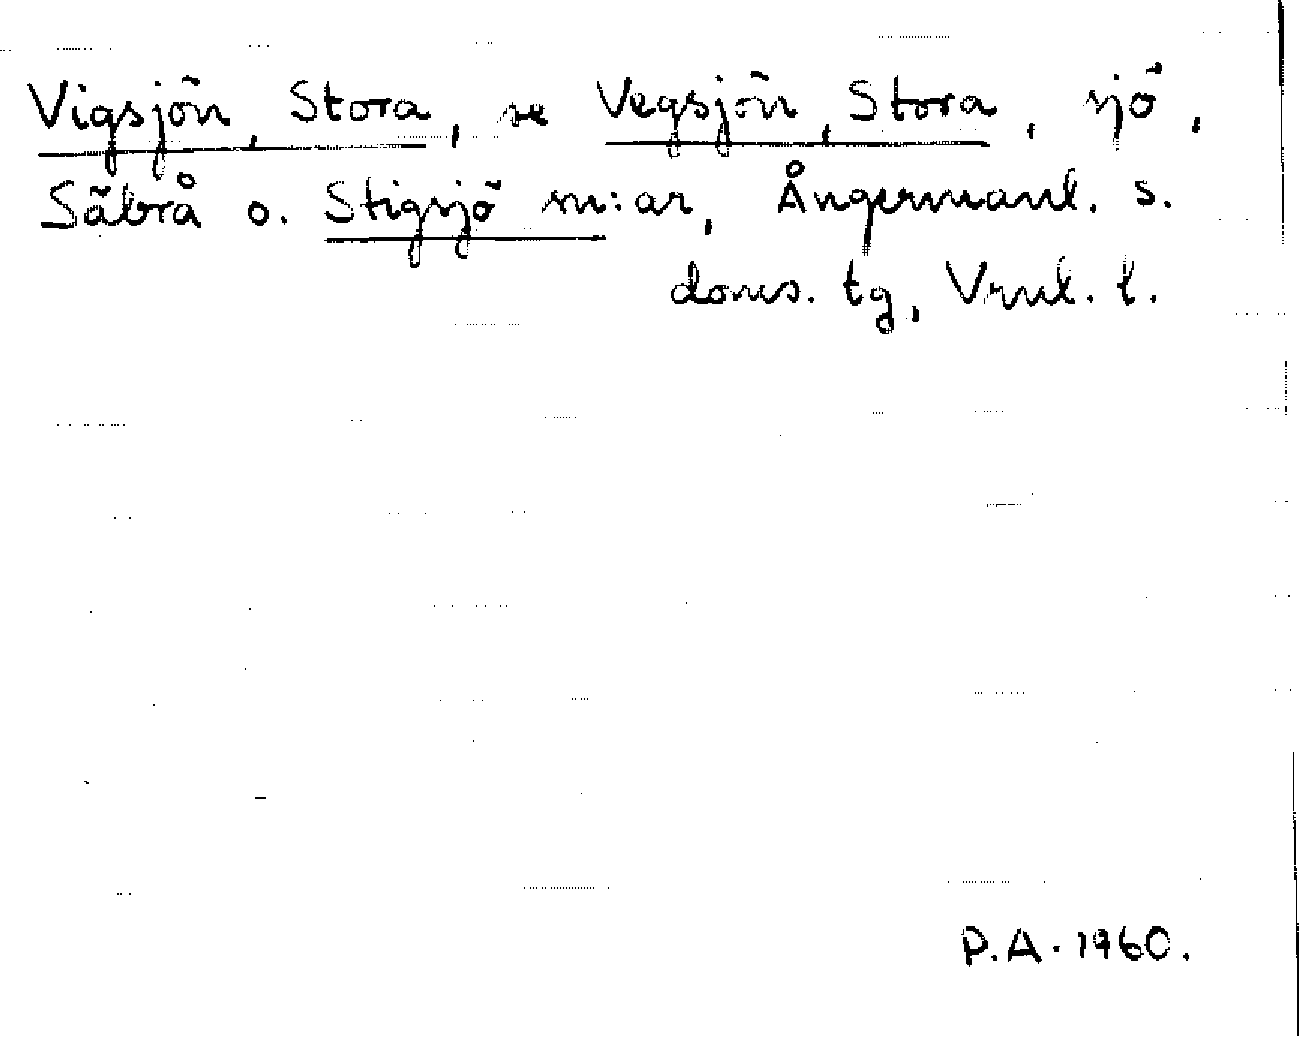 Vigsjön, Stora, se Vegsjön, Stora, sjö,
Säbrå o. Stigsjö sn:ar, Ångermanl. s.
doms. tg, Vrnl. l.
P.A. 1960.